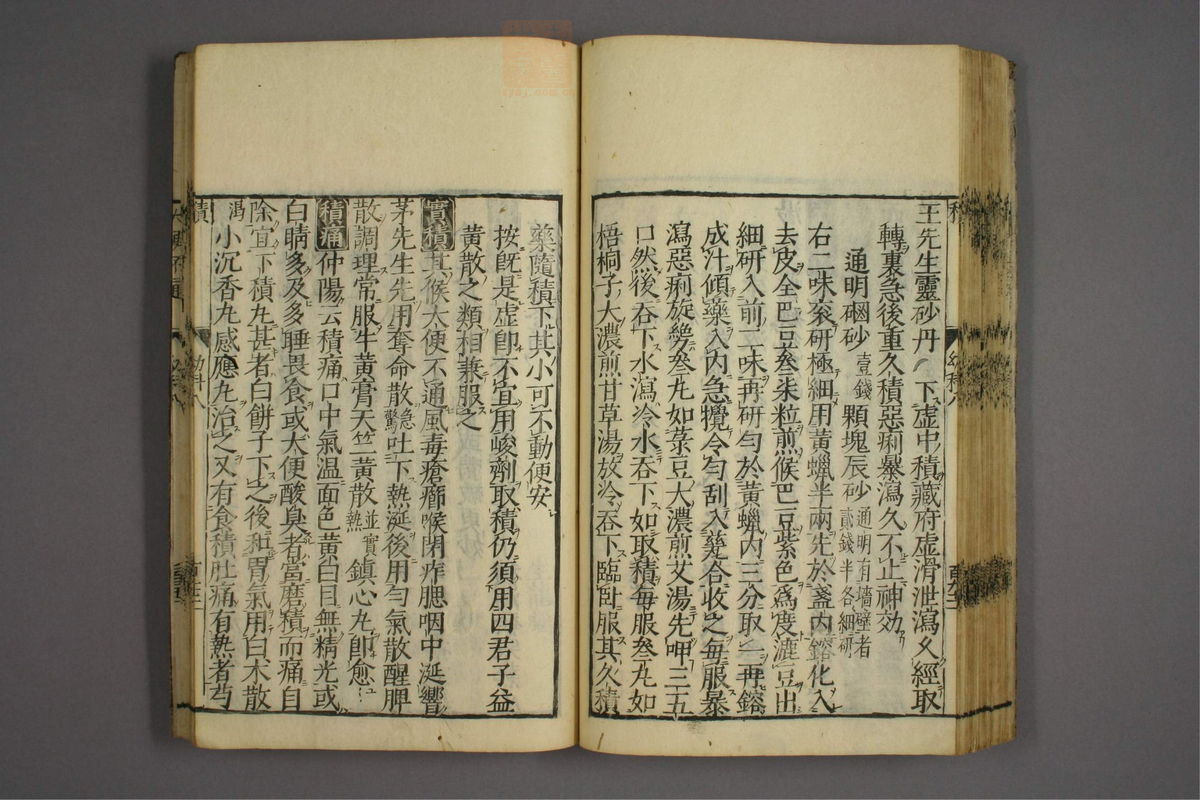 王先生靈砂丹　下虚中積藏府虚滑泄瀉久經取
轉裏急後重久積惡痢㬥瀉久不止神効
通明硇砂壹錢　顆塊辰砂通明有墻壁者貳錢半各細研
右二味衮研極細用黄蠟半兩先於盞内鎔化入
去皮全巴豆叁柒粒煎候巴豆紫色爲度漉豆出
細研入前二味再研勻於黄蠟内三分取二再鎔
成汁傾藥入内急攪令勻刮入甆合收之毎服暴
瀉惡痢旋䥥叁丸如菉豆大濃煎艾湯先呷三五
口然後吞下水瀉冷水吞下如取積毎服叁丸如
梧桐子大濃煎甘草湯放冷吞下臨卧服其久積
藥隨積下其小可不動便安
按旣是虚卽不宜用峻劑取積仍須用四君子益
黄散之類相兼服之
實積其候大便不通風毒瘡癤喉閉痄腮咽中涎響
茅先生先用奪命散急驚吐下熱涎後用勻氣散醒脾
散調理常服牛黄膏天竺黄散並實熱鎮心丸卽愈
積痛仲陽云積痛口中氣温面色黄白目無精光或
白睛多及多睡畏食或大便酸臭者當磨積而痛自
除宜下積丸甚者白餅子下之後和胃氣用白木散
馮小沉香丸感應丸治之又有食積肚痛有熱者芍